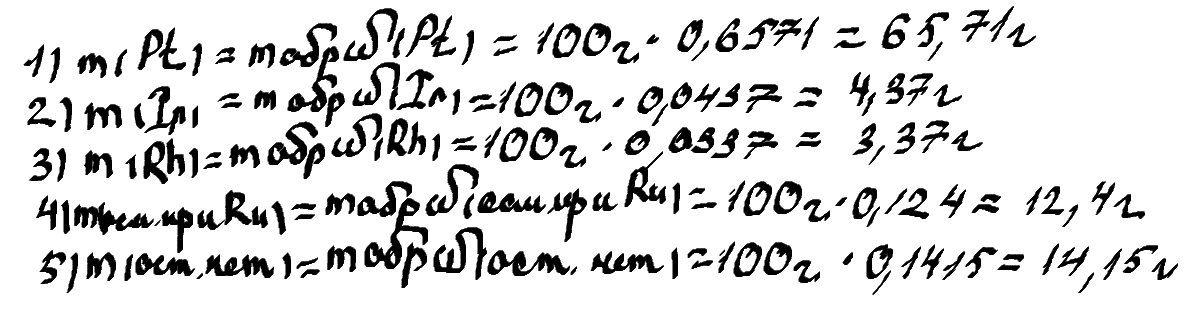 1) m(Pt) = mобр ω(Pt) = 100г · 0,6571 = 65,71г
2) m(Ir) = mобр ω(Ir) = 100г · 0,0437 = 4,37г
3) m(Rh) = mобр ω(Rh) = 100г · 0,0337 = 3,37г
4) m( Ru) = mобр ω( Ru) = 100г · 0,124 = 12,4г
5) m(ост. мет) = mобр ω(ост. мет) = 100г · 0,1415 = 14,15г